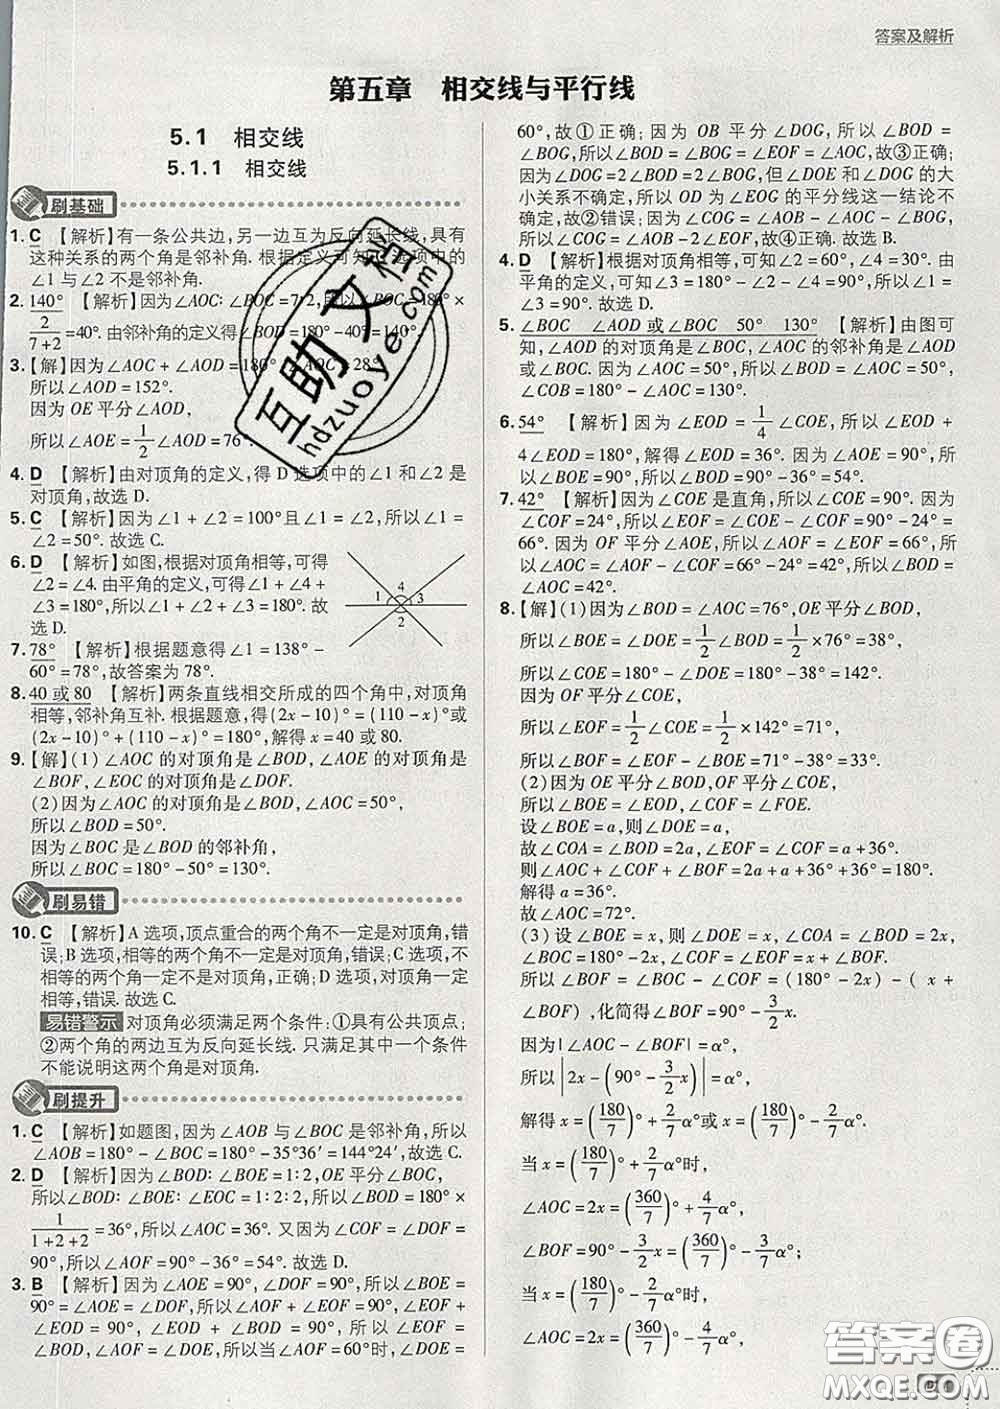 答案及解析
第五章 相交线与平行线
5.1 相交线
5.1.1 相交线
刷基础
1. C 【解析】有一条公共边,另一边互为反向延长线,具有
这种关系的两个角是邻补角. 根据定义可知C选项中的
∠1与∠2不是邻补角.
2. 140° 【解析】因为∠AOC∶∠BOC=7∶2,所以∠BOC=180°×
2/(7+2)=40°. 由邻补角的定义得∠BOD=180°-40°=140°.
3.【解】因为∠AOC+∠AOD=180°,∠AOC=28°,
所以∠AOD=152°.
因为OE平分∠AOD,
所以∠AOE=1/2∠AOD=76°.
4. D 【解析】由对顶角的定义,得D选项中的∠1和∠2是
对顶角,故选D.
5. C 【解析】因为∠1+∠2=100°且∠1=∠2,所以∠1=
∠2=50°. 故选C.
6. D 【解析】如图,根据对顶角相等,可得
∠2=∠4. 由平角的定义,可得∠1+∠4+
∠3=180°,所以∠1+∠2+∠3=180°. 故
选D.
1 4 3
2
7. 78° 【解析】根据题意得∠1=138°-
60°=78°,故答案为78°.
8. 40或80 【解析】两条直线相交所成的四个角中,对顶角
相等,邻补角互补. 根据题意,得(2x-10)°=(110-x)°或
(2x-10)°+(110-x)°=180°,解得x=40或80.
9.【解】(1)∠AOC的对顶角是∠BOD,∠AOE的对顶角是
∠BOF,∠EOC的对顶角是∠DOF.
(2)因为∠AOC的对顶角是∠BOD,∠AOC=50°,
所以∠BOD=50°.
因为∠BOC是∠BOD的邻补角,
所以∠BOC=180°-50°=130°.
刷易错
10. C 【解析】A选项,顶点重合的两个角不一定是对顶角,错
误;B选项,相等的两个角不一定是对顶角,错误;C选项,不
相等的两个角一定不是对顶角,正确;D选项,对顶角一定
相等,错误. 故选C.
易错警示 对顶角必须满足两个条件:①具有公共顶点;
②两个角的两边互为反向延长线. 只满足其中一个条件
不能说明这两个角是对顶角.
刷提升
1. C 【解析】如题图,因为∠AOB与∠BOC是邻补角,所以
∠AOB=180°-∠BOC=180°-35°36′=144°24′,故选C.
2. D 【解析】因为∠BOD∶∠BOE=1∶2,OE平分∠BOC,
所以∠BOD∶∠BOE∶∠EOC=1∶2∶2,所以∠BOD=180°×
1/(1+2+2)=36°,所以∠AOC=36°. 又因为∠COF=∠DOF=
90°,所以∠AOF=90°-36°=54°. 故选D.
3. B 【解析】因为∠AOE=90°,∠DOF=90°,所以∠BOE=
90°=∠AOE=∠DOF,所以∠AOF+∠EOF=90°,∠EOF+
∠EOD=90°,∠EOD+∠BOD=90°,所以∠EOF=
∠BOD,∠AOF=∠DOE,所以当∠AOF=60°时,∠DOE=
60°,故①正确;因为OB平分∠DOG,所以∠BOD=
∠BOG,所以∠BOD=∠BOG=∠EOF=∠AOC,故③正确;
因为∠DOG=2∠BOD=2∠BOG,但∠DOE和∠DOG的大
小关系不确定,所以OD为∠EOG的平分线这一结论不
确定,故②错误;因为∠COG=∠AOB-∠AOC-∠BOG,
所以∠COG=∠AOB-2∠EOF,故④正确. 故选B.
4. D 【解析】根据对顶角相等,可知∠2=60°,∠4=30°. 由
平角的定义,可知∠3=180°-∠2-∠4=90°,所以∠1=
∠3=90°. 故选D.
5. ∠BOC ∠AOD或∠BOC 50° 130° 【解析】由图可
知,∠AOD的对顶角是∠BOC,∠AOC的邻补角是∠AOD
或∠BOC. 因为∠AOC=50°,所以∠BOD=∠AOC=50°,
∠COB=180°-∠AOC=130°.
6. 54° 【解析】因为∠EOD=1/4∠COE,所以∠EOD+
4∠EOD=180°,解得∠EOD=36°. 因为∠AOE=90°,所
以∠BOE=90°,所以∠BOD=90°-36°=54°.
7. 42° 【解析】因为∠COE是直角,所以∠COE=90°. 因为
∠COF=24°,所以∠EOF=∠COE-∠COF=90°-24°=
66°. 因为OF平分∠AOE,所以∠AOF=∠EOF=66°,所
以∠AOC=∠AOF-∠COF=66°-24°=42°,所以∠BOD=
∠AOC=42°.
8.【解】(1)因为∠BOD=∠AOC=76°,OE平分∠BOD,
所以∠BOE=∠DOE=1/2∠BOD=1/2×76°=38°,
所以∠COE=180°-∠DOE=180°-38°=142°.
因为OF平分∠COE,
所以∠EOF=1/2∠COE=1/2×142°=71°,
所以∠BOF=∠EOF-∠BOE=71°-38°=33°.
(2)因为OE平分∠BOD,OF平分∠COE,
所以∠BOE=∠EOD,∠COF=∠FOE.
设∠BOE=a,则∠DOE=a,
故∠COA=∠BOD=2a,∠EOF=∠COF=a+36°.
则∠AOC+∠COF+∠BOF=2a+a+36°+36°=180°.
解得a=36°.
故∠AOC=72°.
(3)设∠BOE=x,则∠DOE=x,∠COA=∠BOD=2x,
∠BOC=180°-2x,∠COF=∠EOF=x+∠BOF.
所以∠BOF=∠BOC-∠COF=(180°-2x)-(x+
∠BOF),化简得∠BOF=90°-3/2x.
因为|∠AOC-∠BOF|=α°,
所以|2x-(90°-3/2x)|=α°,
解得x=(180/7)°+2/7α°或x=(180/7)°-2/7α°.
当x=(180/7)°+2/7α°时,
∠AOC=2x=(360/7)°+4/7α°,
∠BOF=90°-3/2x=(360/7)°-3/7α°;
当x=(180/7)°-2/7α°时,
∠AOC=2x=(360/7)°-4/7α°,
互助文档
hdzuoye.com
答案圈
MXQE.COM